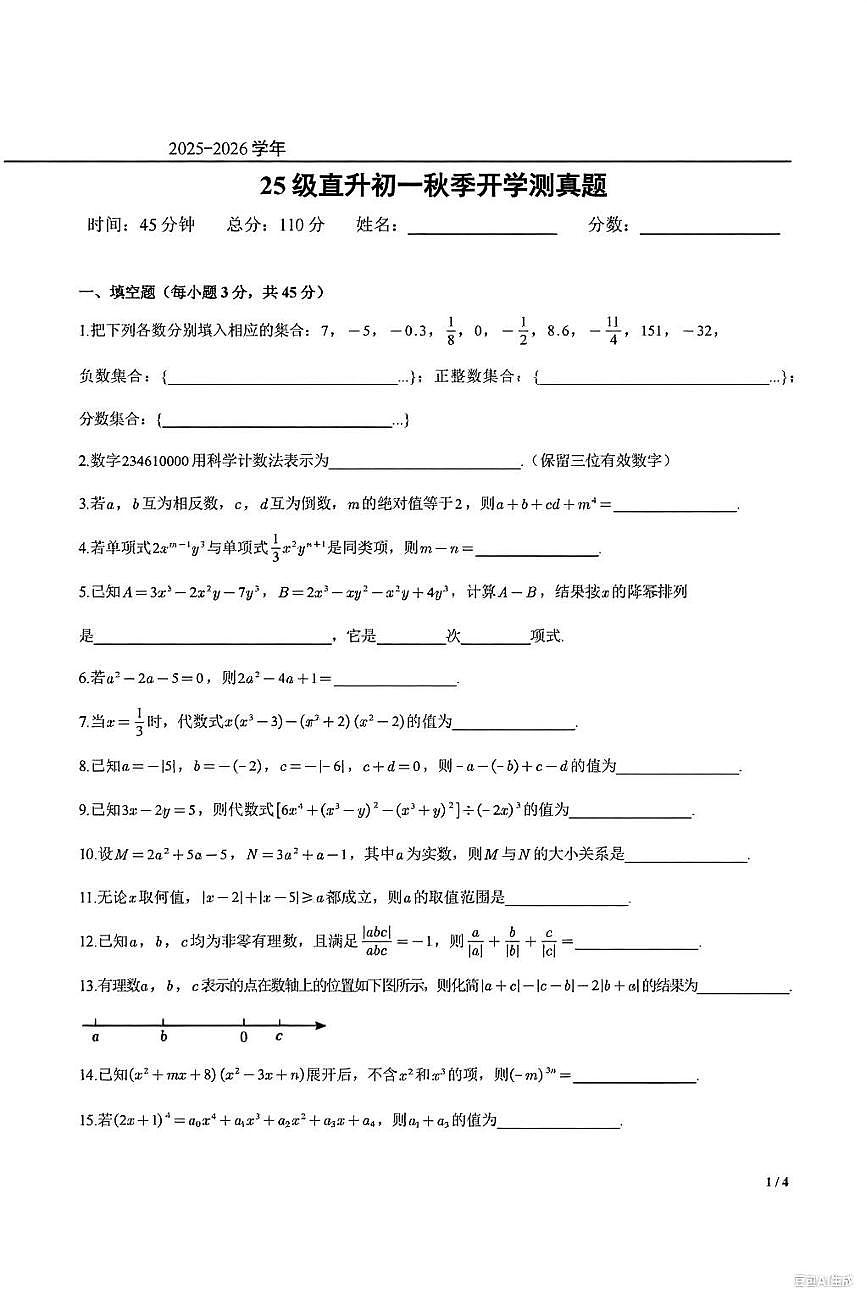 2025-2026 学年
25 级直升初一秋季开学测真题
时间：45 分钟 总分：110 分 姓名：________ 分数：________
一、填空题（每小题 3 分，共 45 分）
1.把下列各数分别填入相应的集合：7，−5，−0.3，1/8，0，−1/2，8.6，−11/4，151，−32，
负数集合：{________...}；正整数集合：{________...}；
分数集合：{________...}
2.数字234610000 用科学计数法表示为________.（保留三位有效数字）
3.若a，b互为相反数，c，d互为倒数，m的绝对值等于2，则a+b+cd+m⁴=________.
4.若单项式2xᵐ⁻¹y³与单项式1/3x²yⁿ⁺¹是同类项，则m−n=________.
5.已知A=3x³−2x²y−7y³，B=2x³−xy²−x²y+4y³，计算A−B，结果按x的降幂排列
是________，它是________次________项式.
6.若a²−2a−5=0，则2a²−4a+1=________.
7.当x=1/3时，代数式x(x³−3)−(x²+2)(x²−2)的值为________.
8.已知a=−|5|，b=−(−2)，c=−|−6|，c+d=0，则−a−(−b)+c−d的值为________.
9.已知3x−2y=5，则代数式[6x⁴+(x³−y)²−(x³+y)²]÷(−2x)³的值为________.
10.设M=2a²+5a−5，N=3a²+a−1，其中a为实数，则M与N的大小关系是________.
11.无论x取何值，|x−2|+|x−5|≥a都成立，则a的取值范围是________.
12.已知a，b，c均为非零有理数，且满足|abc|/abc=−1，则a/|a|+b/|b|+c/|c|=________.
13.有理数a，b，c表示的点在数轴上的位置如下图所示，则化简|a+c|−|c−b|−2|b+a|的结果为________.
a b 0 c
14.已知(x²+mx+8)(x²−3x+n)展开后，不含x²和x³的项，则(−m)³ⁿ=________.
15.若(2x+1)⁴=a₀x⁴+a₁x³+a₂x²+a₃x+a₄，则a₁+a₃的值为________.
1 / 4
豆包AI生成